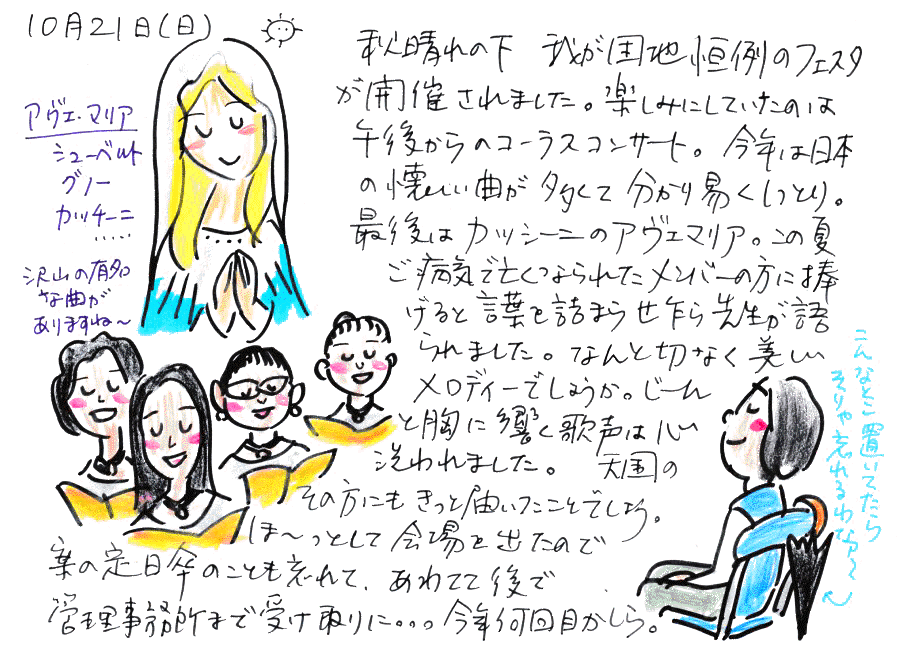 10月21日(日)
アヴェ・マリア
シューベルト
グノー
カッチーニ
.....
沢山の有名
な曲が
ありますね〜
秋晴れの下 我が団地恒例のフェスタ
が開催されました。楽しみにしていたのは
午後からのコーラスコンサート。今年は日本
の懐しい曲が多くて分かり易くしっとり。
最後はカッシーニのアヴェマリア。この夏
ご病気で亡くなられたメンバーの方に捧
げると言葉を詰まらせ乍ら先生が語
られました。なんと切なく美しい
メロディーでしょうか。じーん
と胸に響く歌声は心
洗われました。 天国の
その方にもきっと届いたことでしょう。
ほ〜っとして会場を出たので
案の定日傘のことも忘れて、あわてて後で
管理事務所まで受け取りに...今年何回目かしら。
こんなとこ置いてたら
そりゃ忘れるわなァ〜